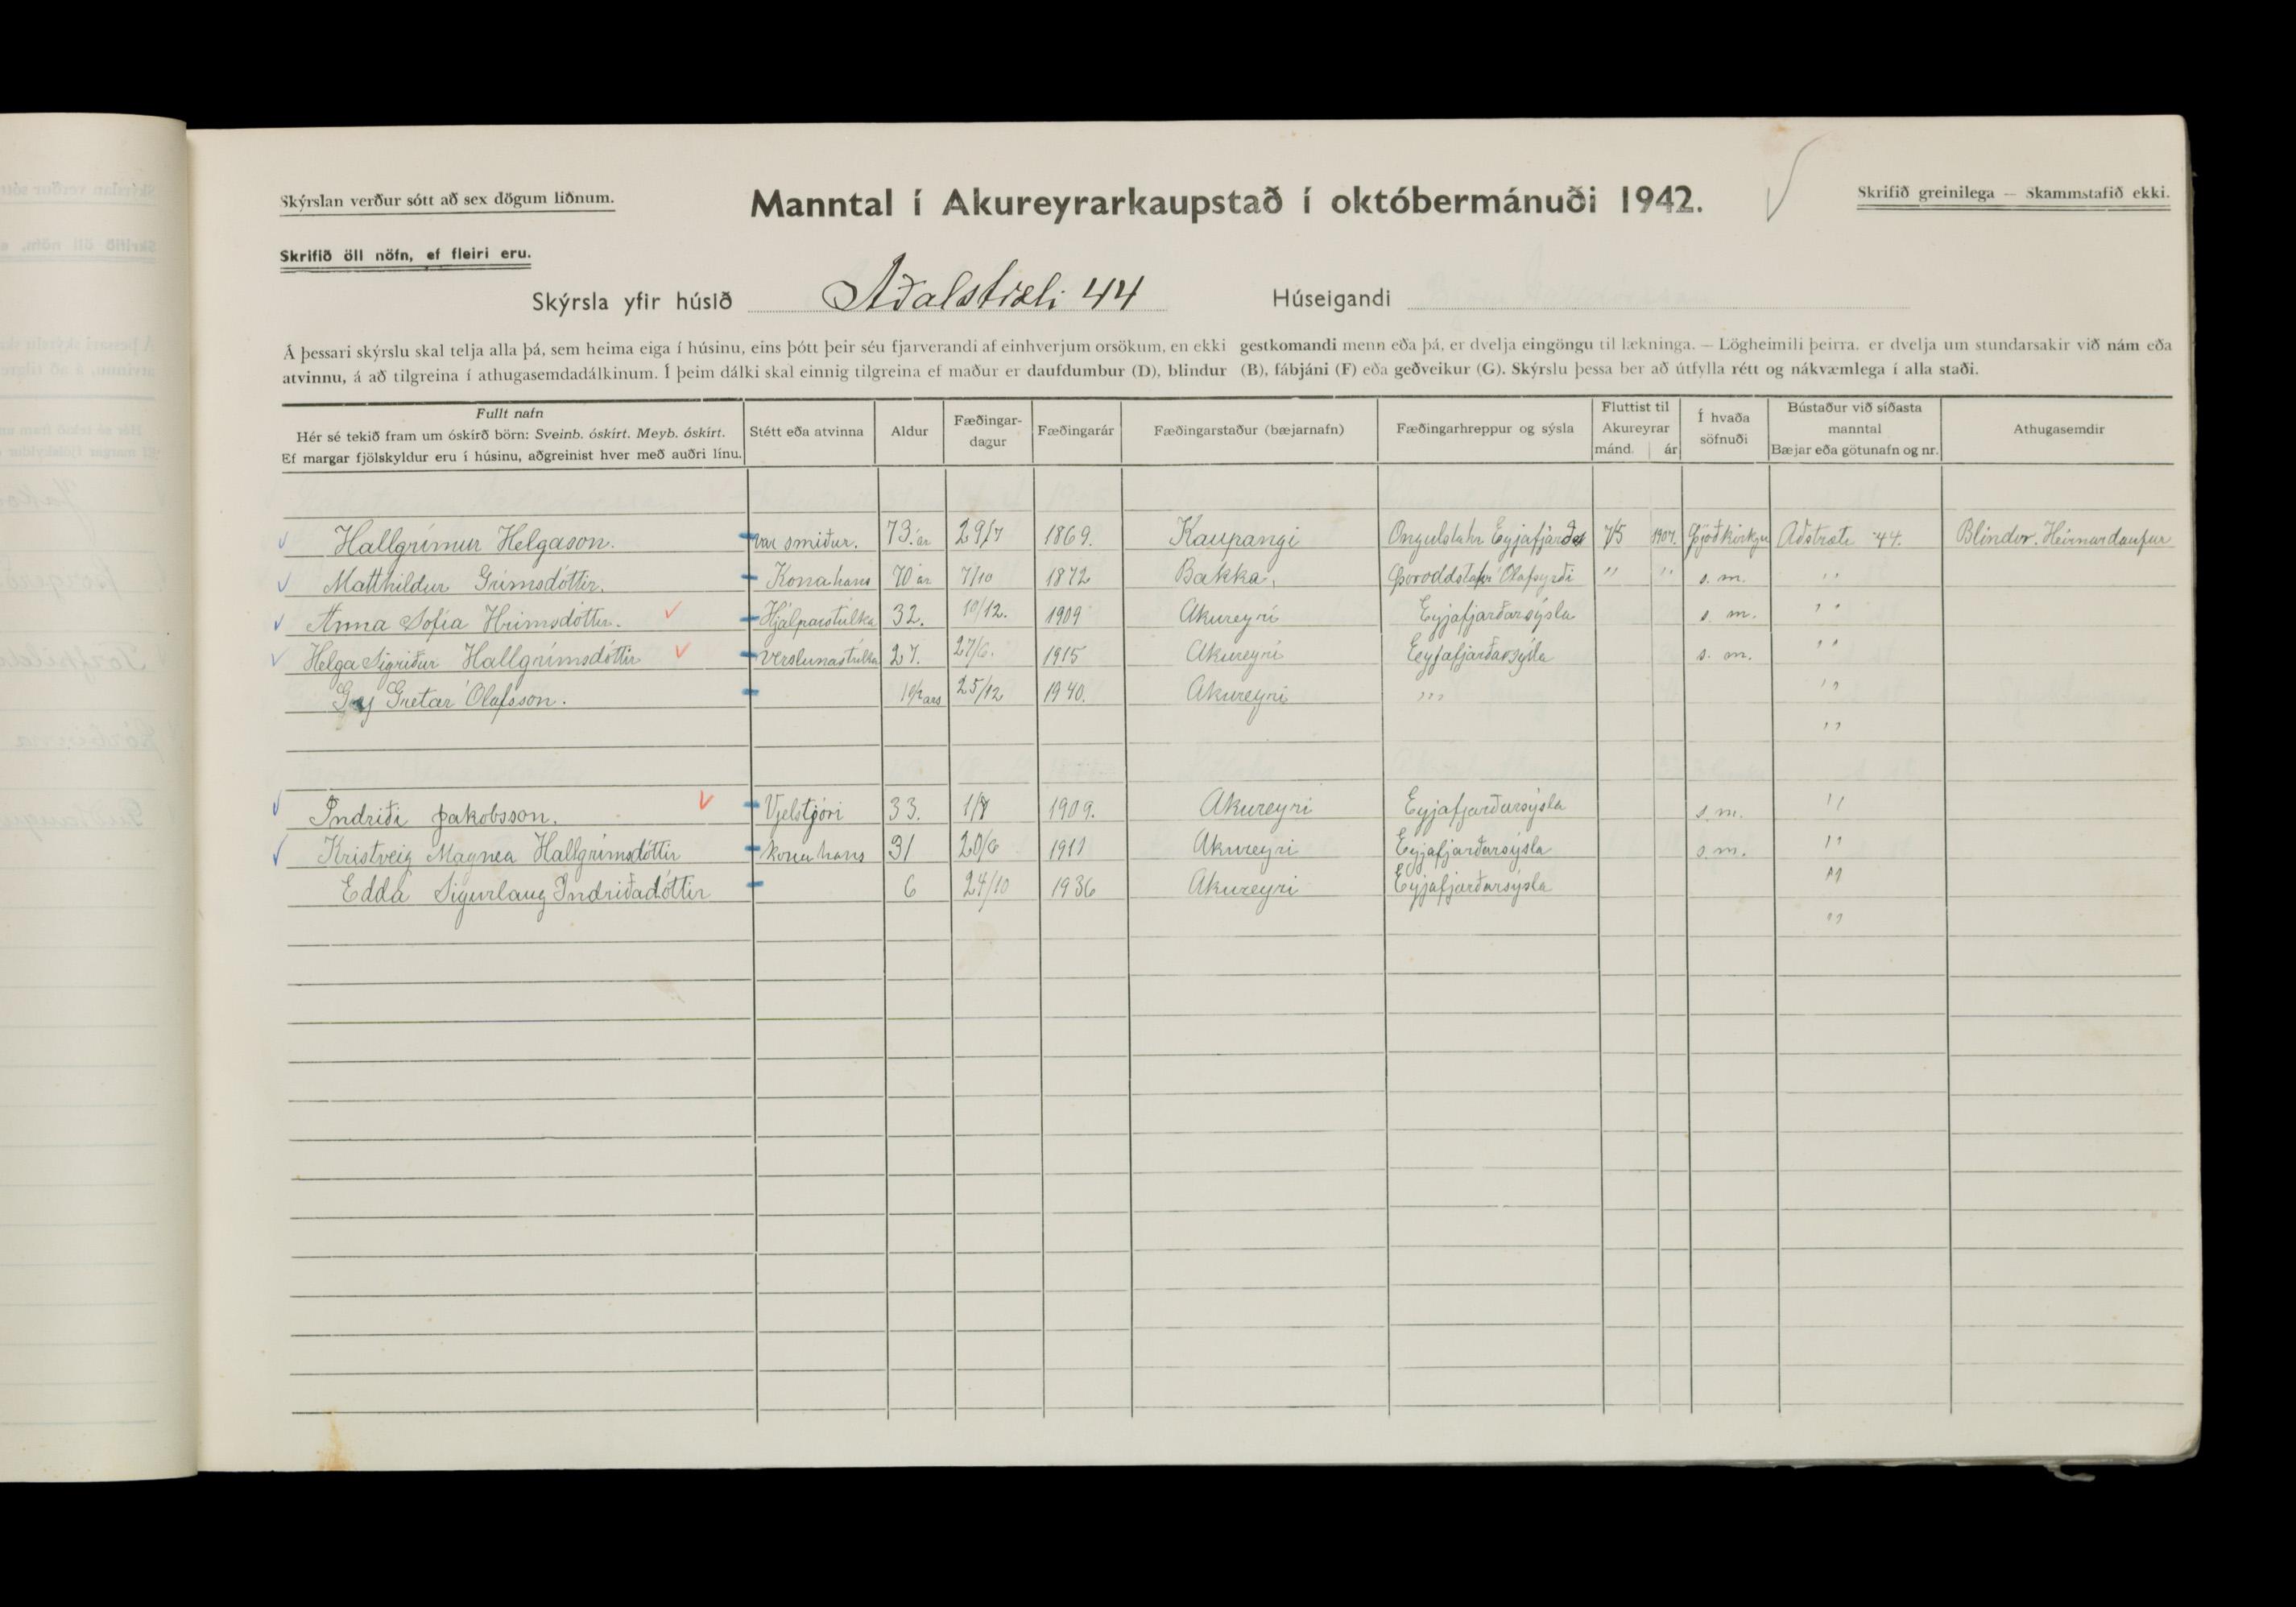 Skýrslan verður sótt að sex dögum liðnum.
Manntal í Akureyrarkaupstað í októbermánuði 1942.
Skrifið greinilega — Skammstafið ekki.
Skrifið öll nöfn, ef fleiri eru.
Skýrsla yfir húsið Aðalstræti 44 Húseigandi
Á þessari skýrslu skal telja alla þá, sem heima eiga í húsinu, eins þótt þeir séu fjarverandi af einhverjum orsökum, en ekki gestkomandi menn eða þá, er dvelja eingöngu til lækninga. — Lögheimili þeirra. er dvelja um stundarsakir við nám eða
atvinnu, á að tilgreina í athugasemdadálkinum. Í þeim dálki skal einnig tilgreina ef maður er daufdumbur (D), blindur (B), fábjáni (F) eða geðveikur (G). Skýrslu þessa ber að útfylla rétt og nákvæmlega í alla staði.
Fullt nafn
Hér sé tekið fram um óskírð börn: Sveinb. óskírt. Meyb. óskírt.
Ef margar fjölskyldur eru í húsinu, aðgreinist hver með auðri línu.
Stétt eða atvinna
Aldur
Fæðingar-
dagur
Fæðingarár
Fæðingarstaður (bæjarnafn)
Fæðingarhreppur og sýsla
Fluttist til
Akureyrar
mánd. ár
Í hvaða
söfnuði
Bústaður við síðasta
manntal
Bæjar eða götunafn og nr.
Athugasemdir
Hallgrímur Helgason. var smiður. 73. ár 29/7 1869. Kaupangi Öngulstahr Eyjafjarðar 7/5 1907. Þjóðkirkju Aðstræte 44. Blindur. Heirnardaufur
Matthildur Grímsdóttir. Kona hans 70 ár 7/10 1872 Bakka, Þoroddstahr Ólafsfyrði " " s. m. "
Anna Sofía Hrimsdóttir. Hjálparstúlka 32. 10/12. 1909 Akureyri Eyjafjarðarsýsla s. m. "
Helga Sigríður Hallgrímsdóttir verslunastúlka 27. 27/6. 1915 Akureyri Eyjafjarðarsýsla s. m. "
Gretar Ólafsson. 25/12 1940. Akureyri " "
"
Indriði Jakobsson. Vjelstjóri 33. 1/8 1909. Akureyri Eyjafjarðarsýsla s. m. "
Kristveig Magnea Hallgrímsdóttir kona hans 31 20/6 1911 Akureyri Eyjafjarðarsýsla s. m. "
Edda Sigurlaug Indriðadóttir 6 24/10 1936 Akureyri Eyjafjarðarsýsla "
"